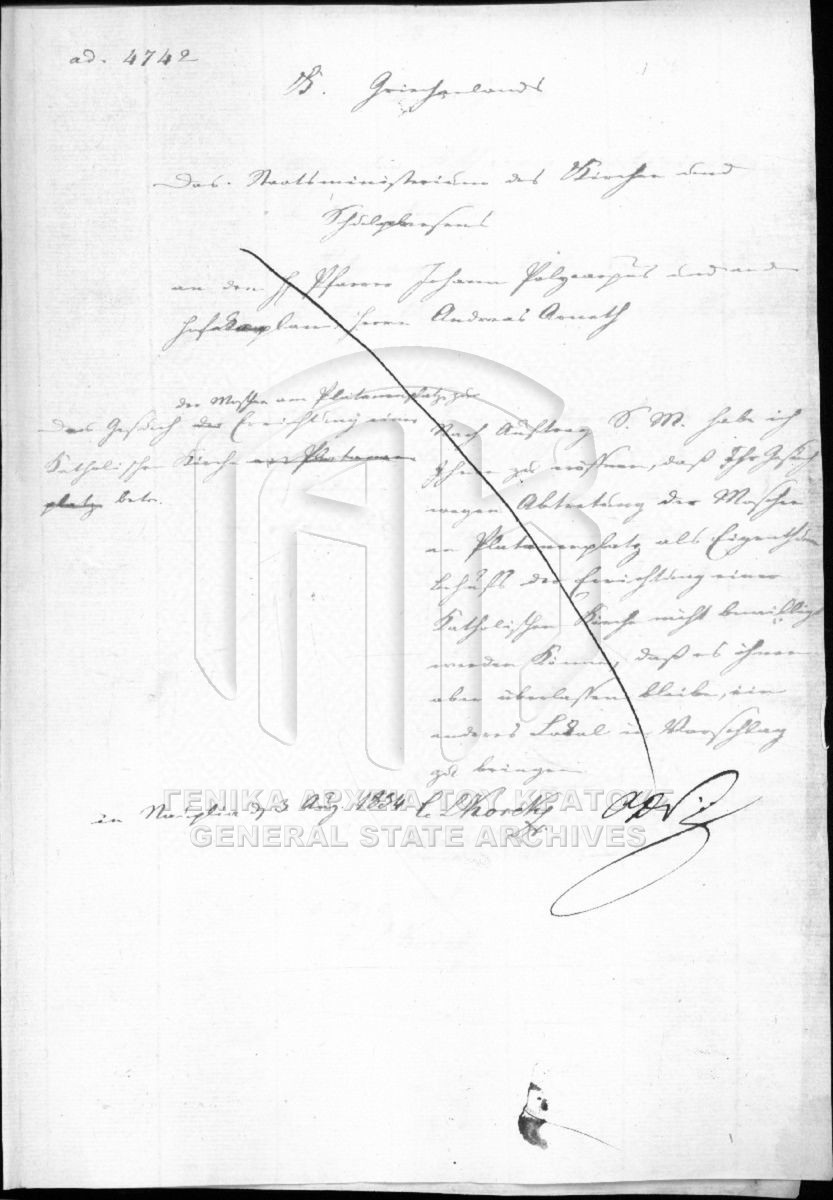 ad. 4742
K. Griechenlands
Das Staatsministerium des Kirchen und
Schulwesens
an den Pfarrer Johann Polycarpus und an den
Hofkaplan Herrn Andreas Arneth
der Moschee am Platanenplatz zur
Das Gesuch der Errichtung einer
Katholischen Kirche am Platanen
platz betr.
Nach Auftrag S. M. habe ich
Ihnen zu eröffnen, daß Ihr Gesuch
wegen Abtretung der Moschee
am Platanenplatz als Eigenthum
behufs der Errichtung einer
Katholischen Kirche nicht bewilligt
werden könne, daß es ihnen
aber überlassen bleibe, ein
anderes Lokal in Vorschlag
zu bringen
in Nauplia d. 3 Aug. 1834
ΓΕΝΙΚΑ ΑΡΧΕΙΑ ΤΟΥ ΚΡΑΤΟΥΣ
GENERAL STATE ARCHIVES